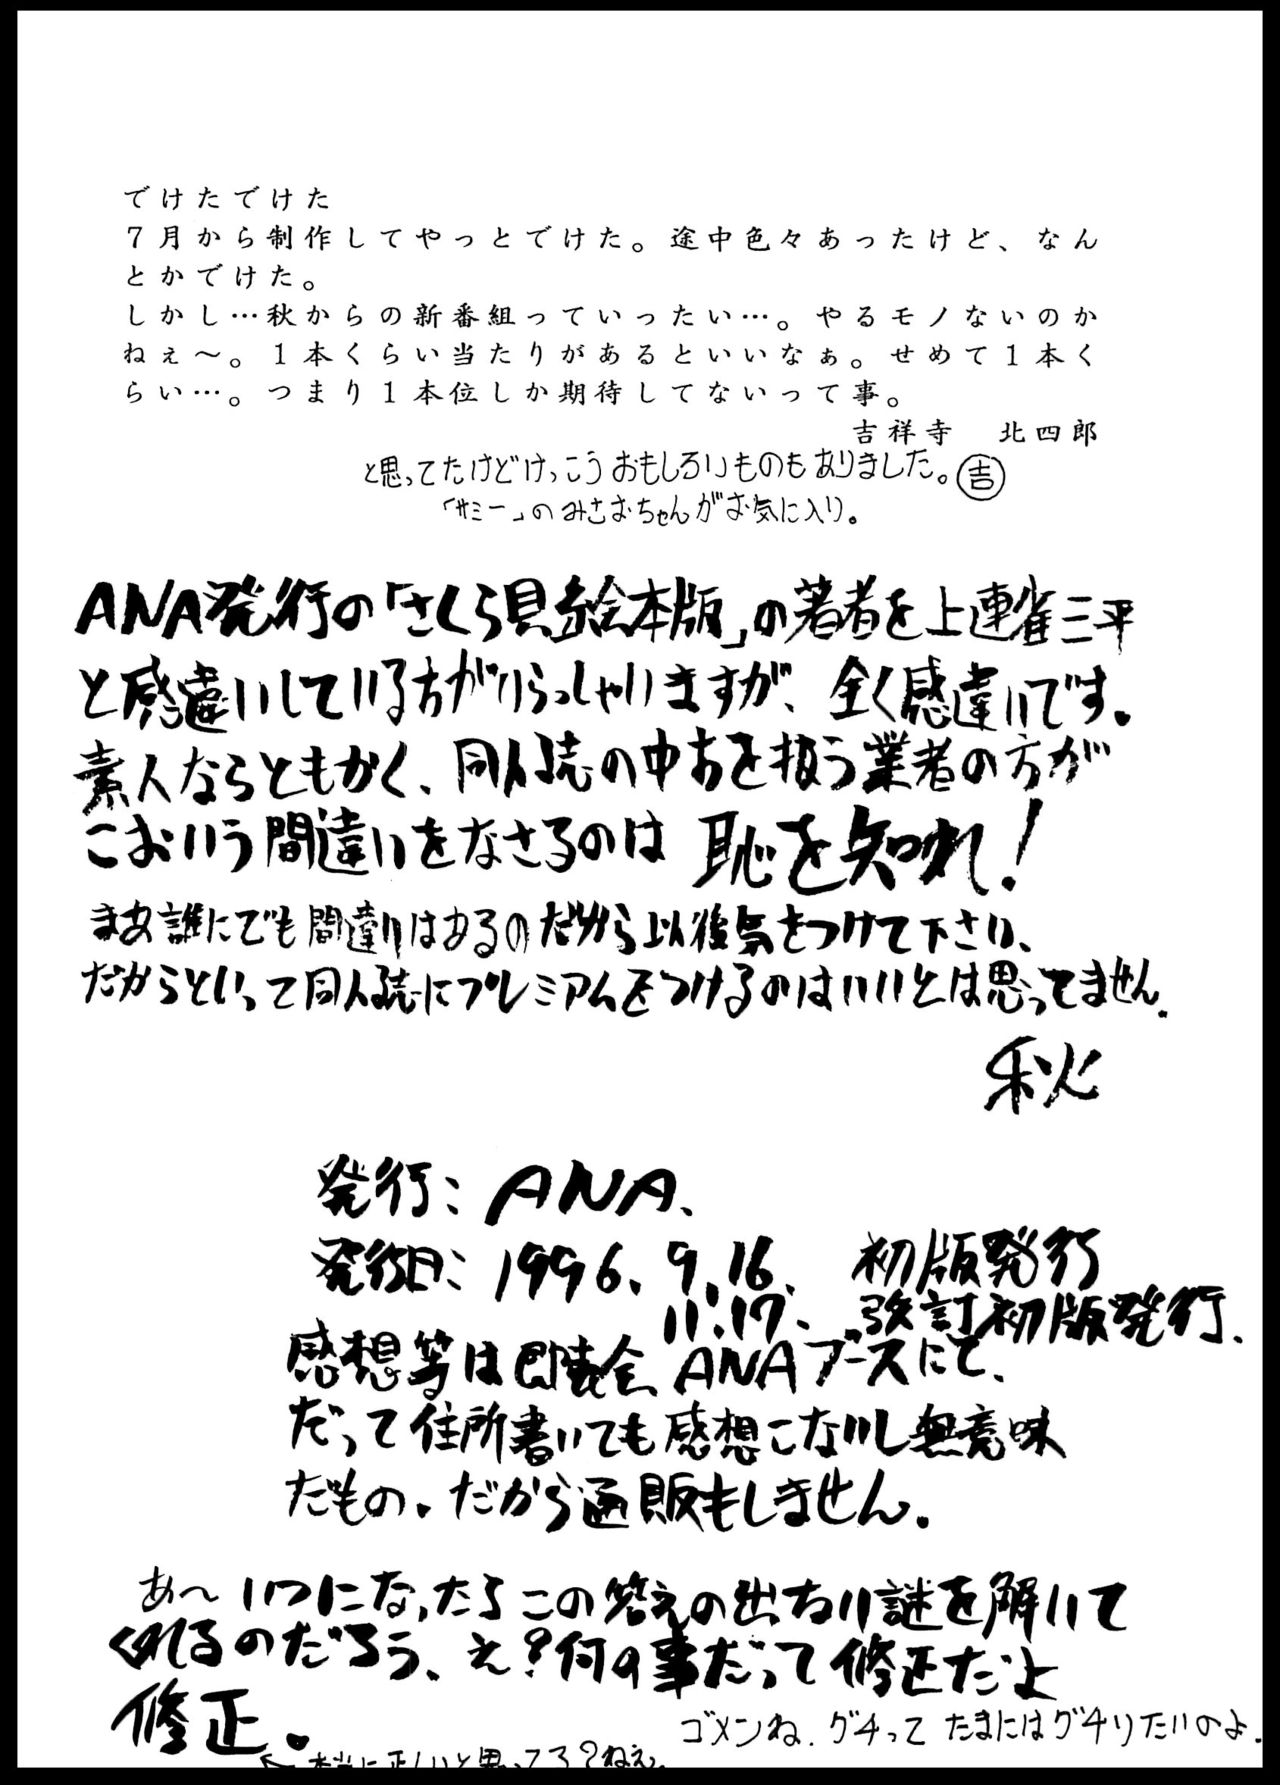 でけたでけた
7月から制作してやっとでけた。途中色々あったけど、なん
とかでけた。
しかし…秋からの新番組っていったい…。やるモノないのか
ねぇ～。1本くらい当たりがあるといいなぁ。せめて1本く
らい…。つまり1本位しか期待してないって事。
吉祥寺　北四郎
と思ってたけどけっこうおもしろいものもありました。吉
「サミー」のみさおちゃんがお気に入り。
ANA発行の「さくら貝絵本版」の著者を上連雀三平
と感違いしている方がいらっしゃいますが、全く感違いです。
素人ならともかく、同人誌の中古を扱う業者の方が
こおいう間違いをなさるのは恥を知れ！
まあ誰にでも間違いはあるのだから以後気をつけて下さい、
だからといって同人誌にプレミアムをつけるのはいいとは思ってません.
秋
発行：ANA.
発行日：1996.9.16.初版発行
11.17.改訂初版発行.
感想等は即売会ANAブースにて、
だって住所書いても感想こないし無意味
だもの.だから通販もしません.
あ～いつになったらこの答えの出ない謎を解いて
くれるのだろう、え？何の事だって修正だよ
修正。
ゴメンね.グチってたまにはグチりたいのよ.
←本当に正しいと思ってる？ねぇ.